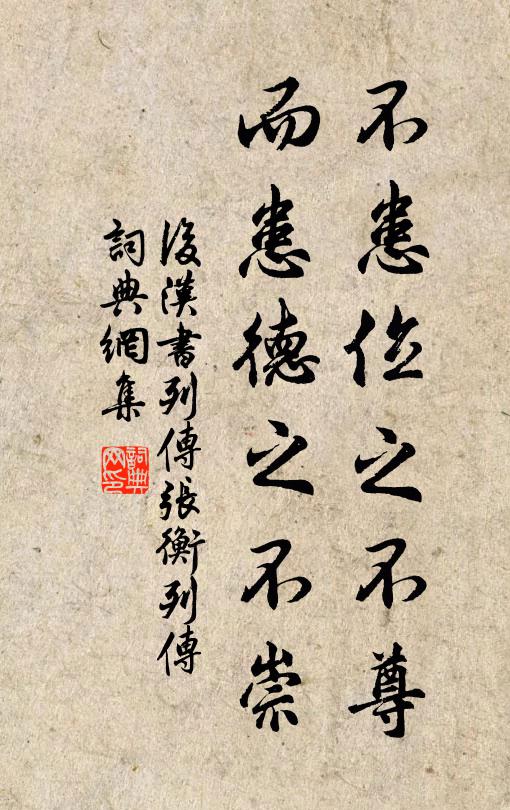 不患位之不尊
而患德之不崇
後漢書列傳張衡列傳
詞典網集
詞典網印